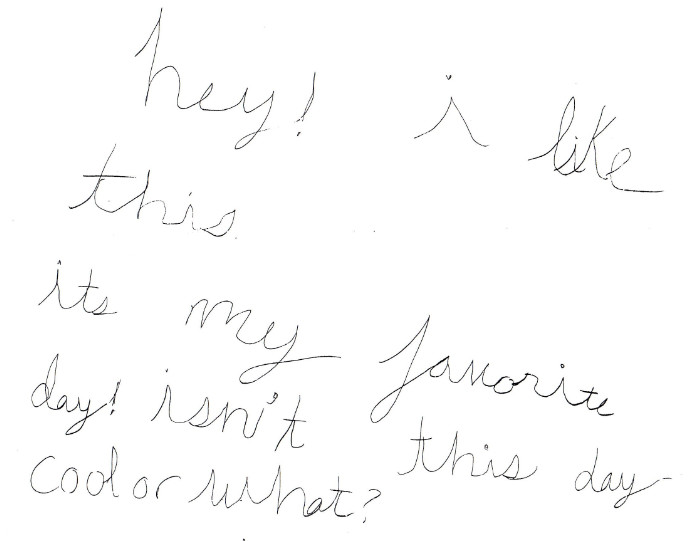 hey! i like
this
its my favorite
day! isn't this day
cool or what?